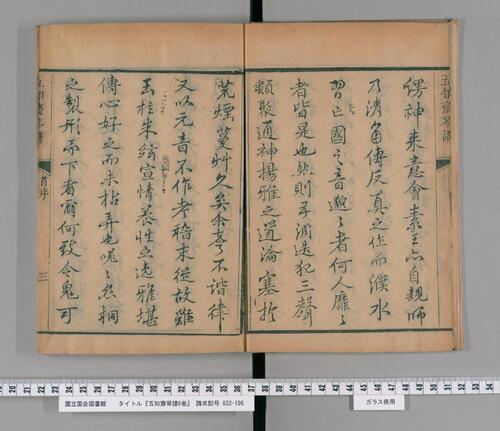 五知齋琴譜
神来意會素王亦自親師
乃清角傳反真之作而濮水
習亡國之音邈〻者何人靡〻
者皆是也然則手調迭犯三聲
聚通神揚雅之道淪塞於
荒煙蔓艸久矣余不諧律
又以元音不作考稽未從故雖
玉柱朱絃宣情養性之逸雅堪
傳心好之而未拈弄也嗟〻桐
之製形而下者爾何致令鬼可
首序
三
国立国会図書館 タイトル『五知齋琴譜8巻』 請求記号 832-196
ガラス使用